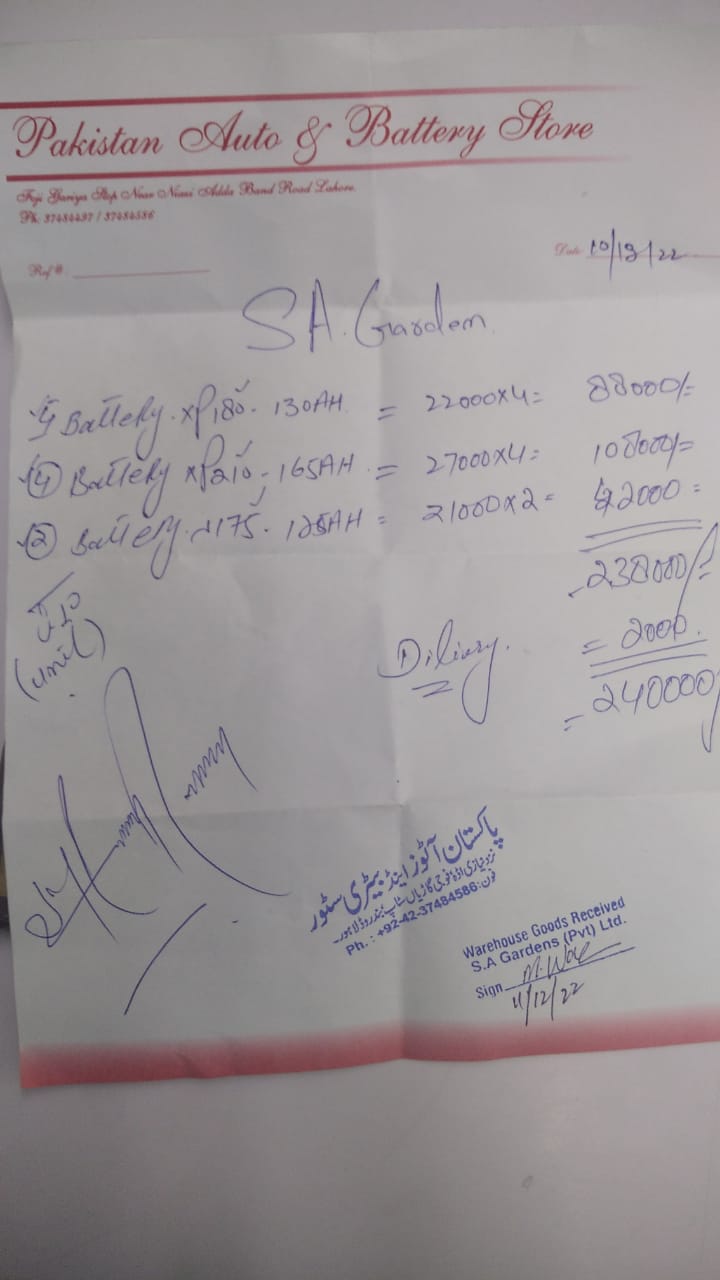 Pakistan Auto & Battery Store
Fuji Gariya Stop Near Niazi Adda Band Road Lahore.
Ph. 37484497 / 37484586
Date 10/12/22
Ref #.
S A. Garden
4 Battery. XP180. 130AH = 22000x4= 88000/=
4 Battery XP210 - 165AH = 27000x4= 108000/=
2 Battery. N175. 125AH = 21000x2= 42000=
238000/-
(unit)
Dilivary. = 2000.
= 240000/
پاکستان آٹوز اینڈ بیٹری سٹور
نزد نیازی اڈہ فوجی گاڑیاں سٹاپ بند روڈ لاہور۔
فون: Ph. : +92-42-37484586
Warehouse Goods Received
S.A Gardens (Pvt) Ltd.
Sign
11/12/22